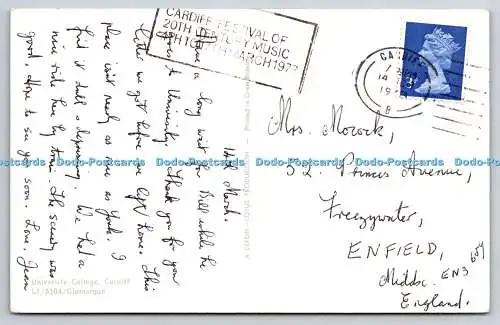 CARDIFF FESTIVAL OF
20TH CENTURY MUSIC
MARCH 197
CARDIFF
14
19
B
Wed. March.
Have a long wait for Bill while he
goes to University. Thank you for your
letter we got before we left home. This
place isn't nearly as nice as York. I
find it dull & depressing. We had a
nice ride here by train. The scenery was
good. Hope to see you soon. Love. Jean
University College, Cardiff
LI/8104/Glamorgan
Mrs. Mocock,
32, Princes Avenue,
Freezywater,
ENFIELD,
Middx. EN3
England.
Dodo-Postcards Dodo-Postcards Dodo-Postcards Dodo-Postcards Dodo-Postcards Dodo-Postcards